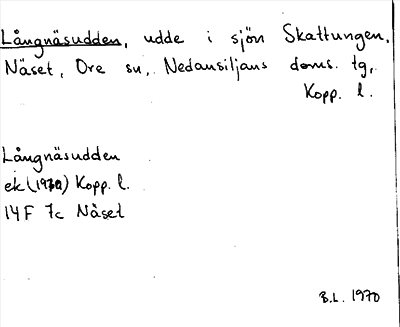 Långnäsudden, udde i sjön Skattungen,
Näset, Ore sn, Nedansiljans doms. tg,
Kopp. l.
Långnäsudden
ek (1970) Kopp. l.
14 F 7c Näset
B.L. 1970